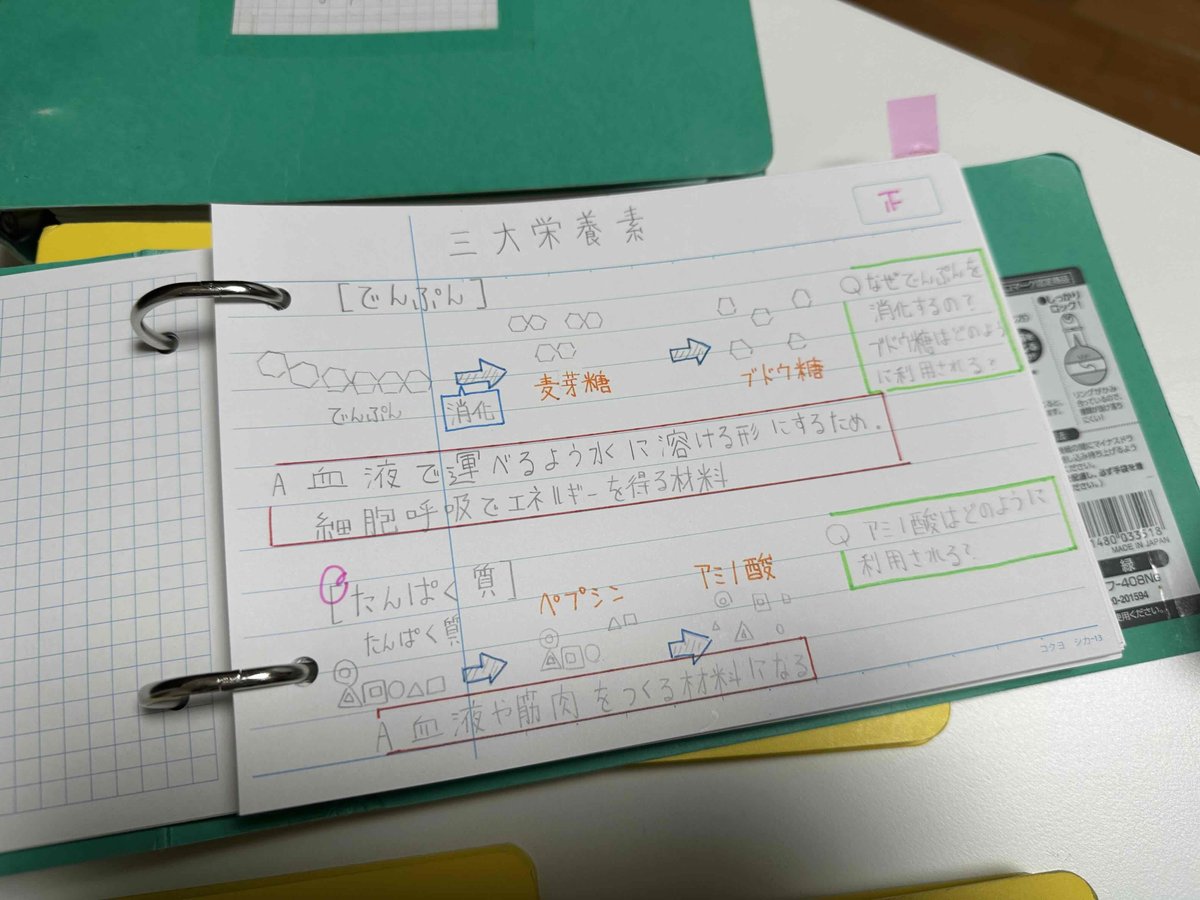 三大栄養素
正
[でんぷん]
でんぷん
消化
麦芽糖
ブドウ糖
Q なぜでんぷんを
消化するの?
ブドウ糖はどのよう
に利用される?
A 血液で運べるよう水に溶ける形にするため.
細胞呼吸でエネルギーを得る材料
[たんぱく質]
たんぱく質
ペプシン
アミノ酸
Q アミノ酸はどのように
利用される?
A 血液や筋肉をつくる材料になる
コクヨ シカ-13
しっかり
ロック!
リングがかみ
合っているので、
種類が抜け落ち
にくい!
MADE IN JAPAN
緑
フ-408NG